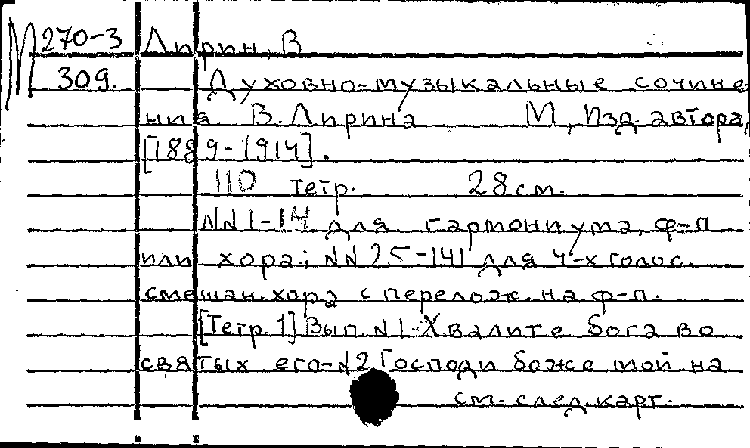 М 270-3 Лирин, В
309. Духовно-музыкальные сочине
ния В. Лирина М, Изд. автора,
[1889-1914].
110 тетр. 28 см.
NN 1-14 для гармониума, ф-п
или хора; NN 25-141 для 4-х голос.
смешан. хора с перелож. на ф-п.
[Тетр. 1] Вып. N 1-Хвалите Бога во
святых его-N 2 Господи боже мой на
см. след. карт.